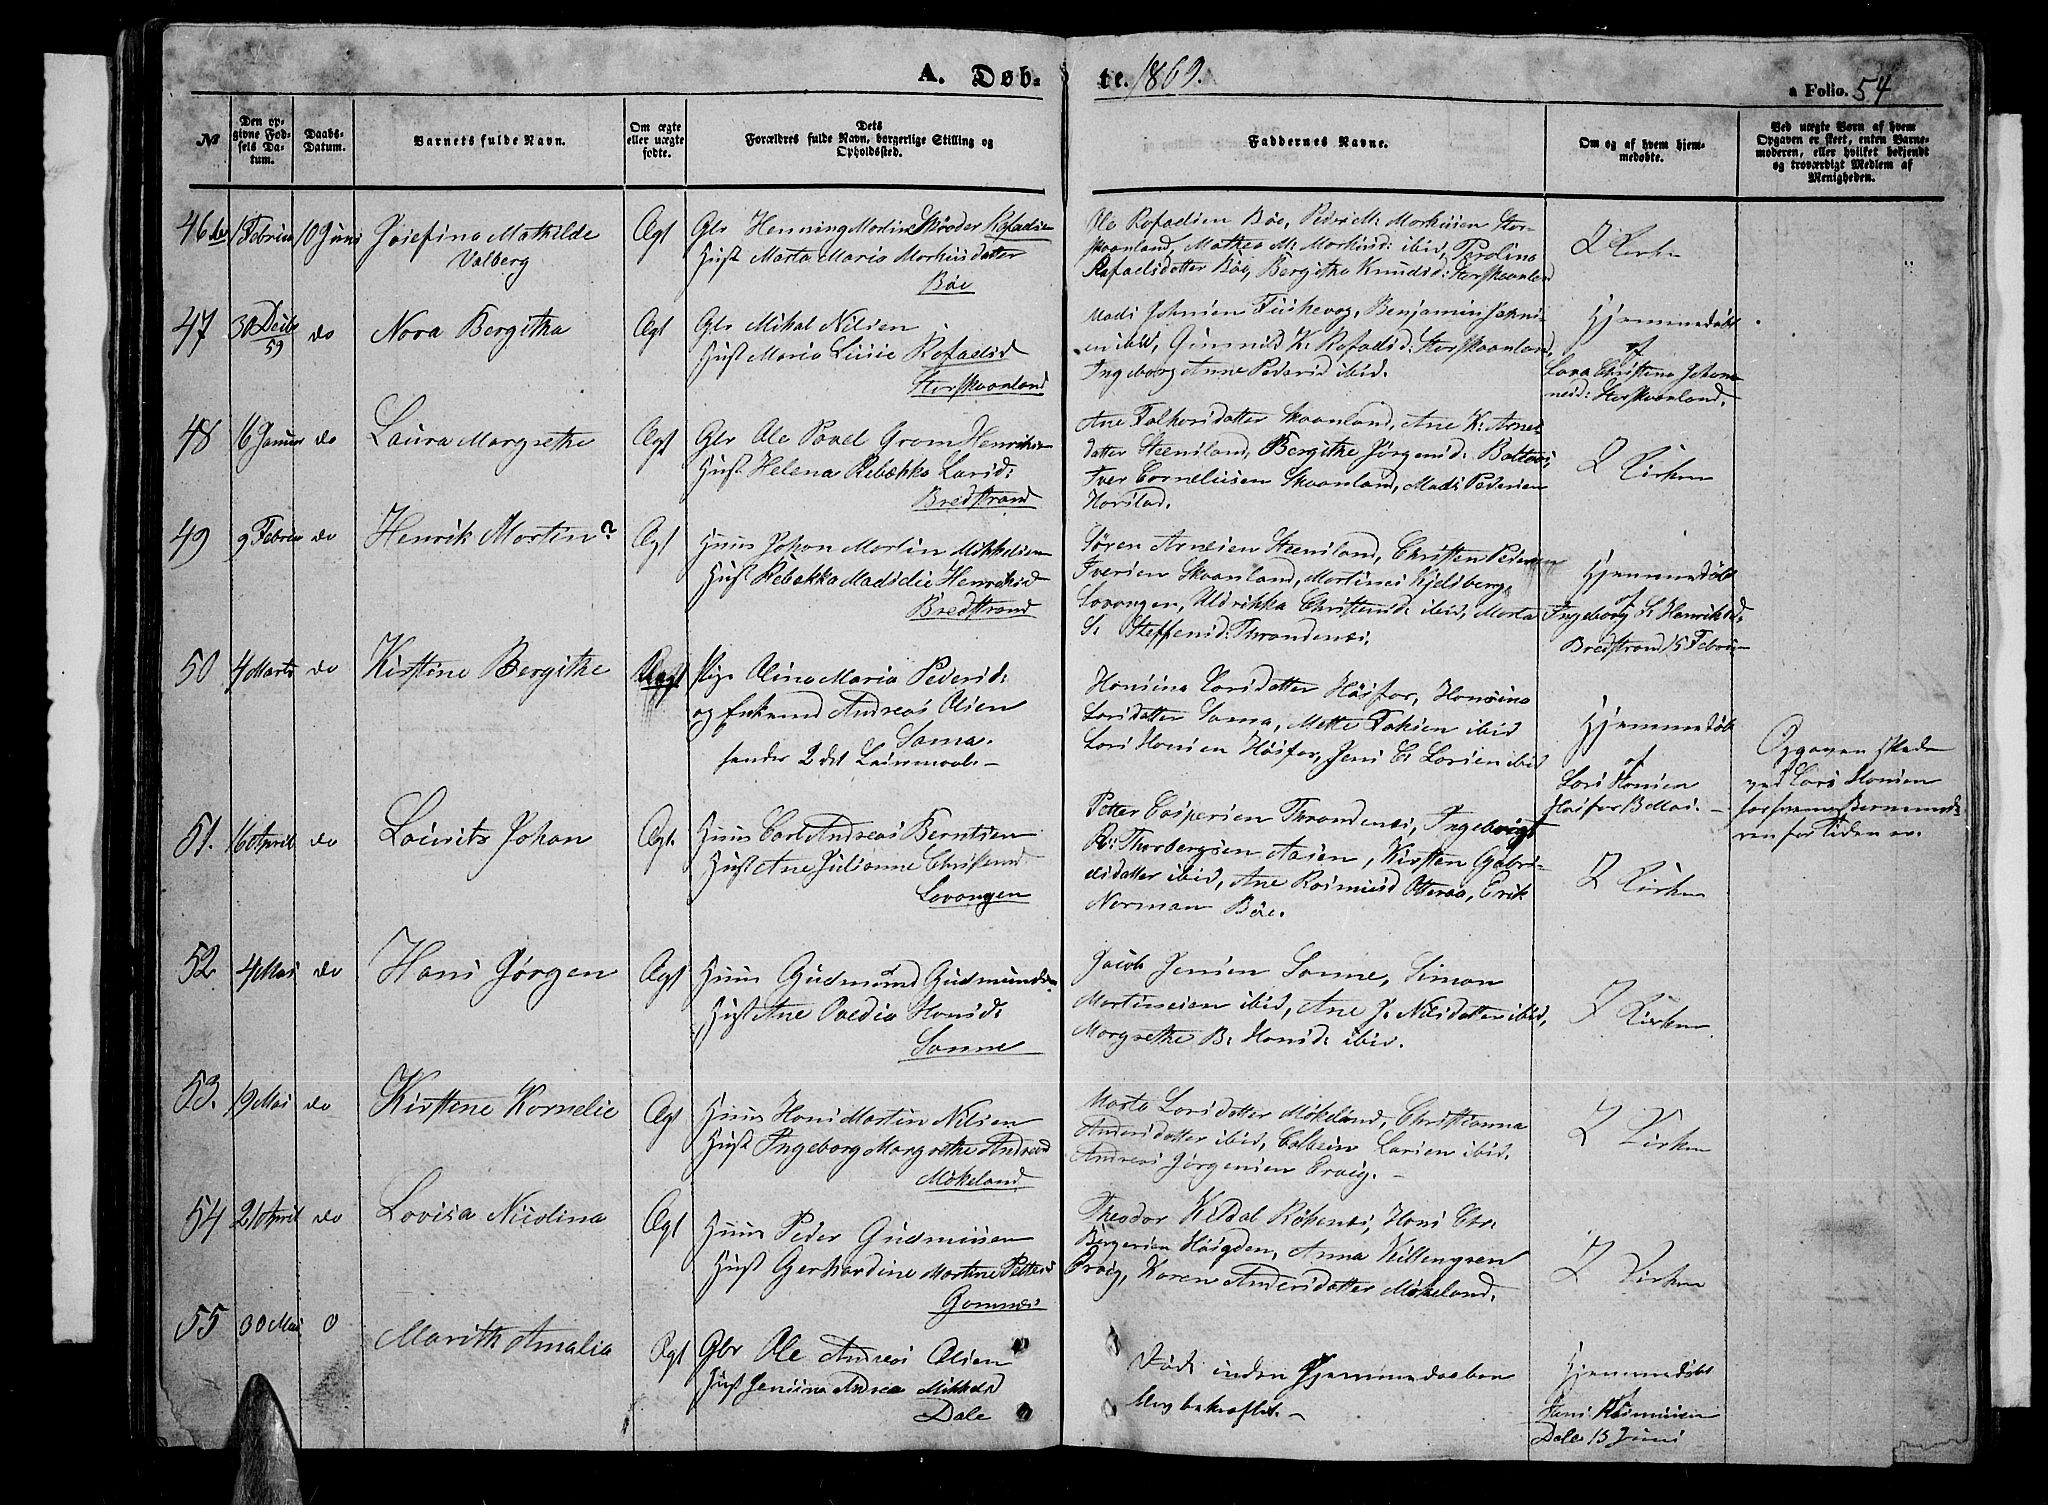 A. Døb- te. 1869.
a Folio. 54
№
Den op-
givne Fød-
sels Da-
tum.
Daabs-
Datum.
Barnets fulde Navn.
Om ægte
eller uægte
fødte.
Dets
Forældres fulde Navn, borgerlige Stilling og
Opholdssted.
Faddernes Navne.
Om og af hvem hjem-
medøbte.
Ved uægte Børn af hvem
Opgaven er skeet, enten Barne-
moderen, eller hvilket bekjendt
og troværdigt Medlem af
Menigheden.
46 1 Februar 10 Juni Josefina Mathilde
Valberg
Ægt
Gbr Henning Martin Skøder Rafaelsen
Hust Marta Maria Markusdatter
Böe
Ole Rafaelsen Böe, Peder M. Markusen Stor-
skaanland, Mathea M. Markusd: ibid, Carolina
Rafaelsdatter Böe, Bergitha Knudsd: Storskaanland
I Kirken
47 30 Decbr
59
do Nora Bergitha Ægt
Gbr Mikal Nilsen
Hust Maria Lusie Rafaelsd
Storskaanland
Mads Johnsen Fiskevog, Benjamin Johns-
en ibid, Gunnild K. Rafaelsd: Storskaanland,
Ingeborg Anne Pedersd ibid.
Hjemmedøbt
af
Lava Christina Johan-
nesd: Storskaanland.
48 16 Januar do Laura Margrethe Ægt
Gbr Ole Povel Grom Henriksen
Hust Helena Rebækka Larsd:
Bredstrand
Ane Falkorsdatter Skaanland, Ane K. Arnes-
datter Steensland, Bergithe Jørgensd: Baltes,
Iver Corneliusen Skaanland, Mads Pedersen
Harstad.
I Kirken
49 9 Februar do Henrik Martin? Ægt
Huus Johan Martin Mikkelsen
Hust Rebækka Madsdie Henriksd
Bredstrand
Søren Arnesen Steensland, Christen Pedersen
Iversen Skaanland, Martines Kjelsberg,
Lovangen, Uldrikka Christensd: ibid, Marta
S: Steffensd: Thrandenæs.
Hjemmedøbt
af
Ingeborg S. Henriksd.
Bredstrand 15 Februar
50 4 Marts do Kirstine Bergithe Uægt
Pige Olina Maria Pedersd:
og Enkemd Andreas Olsen
Sama.
hendes 2det Leiermaal.-
Hansina Larsdatter Høifor, Hansina
Larsdatter Sama, Mette Faksen ibid
Lars Hansen Høifor, Jens C. Larsen ibid
Hjemmedøbt
af
Lars Hansen
Høifor 8 Mai. -
Opgaven skede
ved Lars Hansen
51. 16 April do Laurits Johan Ægt.
Huus Carl Andreas Berntsen
Hust Ane Julianne Christensd
Lovangen
Petter Caspersen Thrandenæs, Ingebrigt
R: Thorbergsen Aasen, Kirsten Gabri-
elsdatter ibid, Ane Rasmusd Otteraa, Erik
Norman Böe.
I Kirken
52 4 Mai do Hans Jørgen Ægt
Huus Gudmund Gudmundsen
Hust Ane Ovedia Hansd:
Sanne
Jacob Jensen Sanne, Simon
Martinusen ibid, Ane J. Nilsdatter ibid,
Margrethe B. Hansd: ibid.
I Kirken
53. 19 Mai do Kirstine Kornelie Ægt
Huus Hans Martin Nilsen
Hust Ingeborg Margrethe Andreasd
Møkeland
Marta Larsdatter Møkeland, Christianna
Andersdatter ibid, Larsen ibid.
Andreas Jørgensen
I Kirken
54 21 April do Lovisa Nicolina Ægt
Huus Peder Gudmusen
Hust Gerhardine Martine Petters
Gamnæs
Theodor Kildal Røkenes, Hans Chr:
Børgersen Høigden, Anna Killengren
Karen Andersdatter Møkeland.
I Kirken
55 30 Mai 0 Marith Amalia Ægt
Gbr Ole Andreas Olsen
Hust Jensina Andrea Mikkelsd
Dale
Døde inden Hjemmedaaben
blev bekræftet. -
Hjemmedøbt
af
Hans Rasmusen
Dale 13 Juni